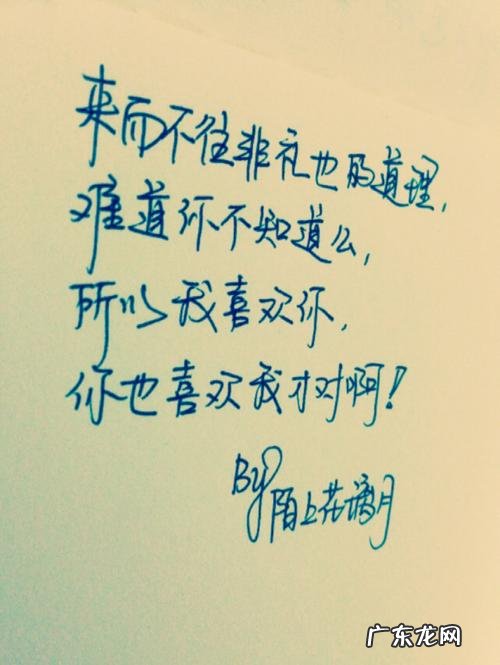 来而不往非礼也的道理,
难道你不知道么,
所以我喜欢你,
你也喜欢我才对啊!
By
陌上花璃月
广东龙网